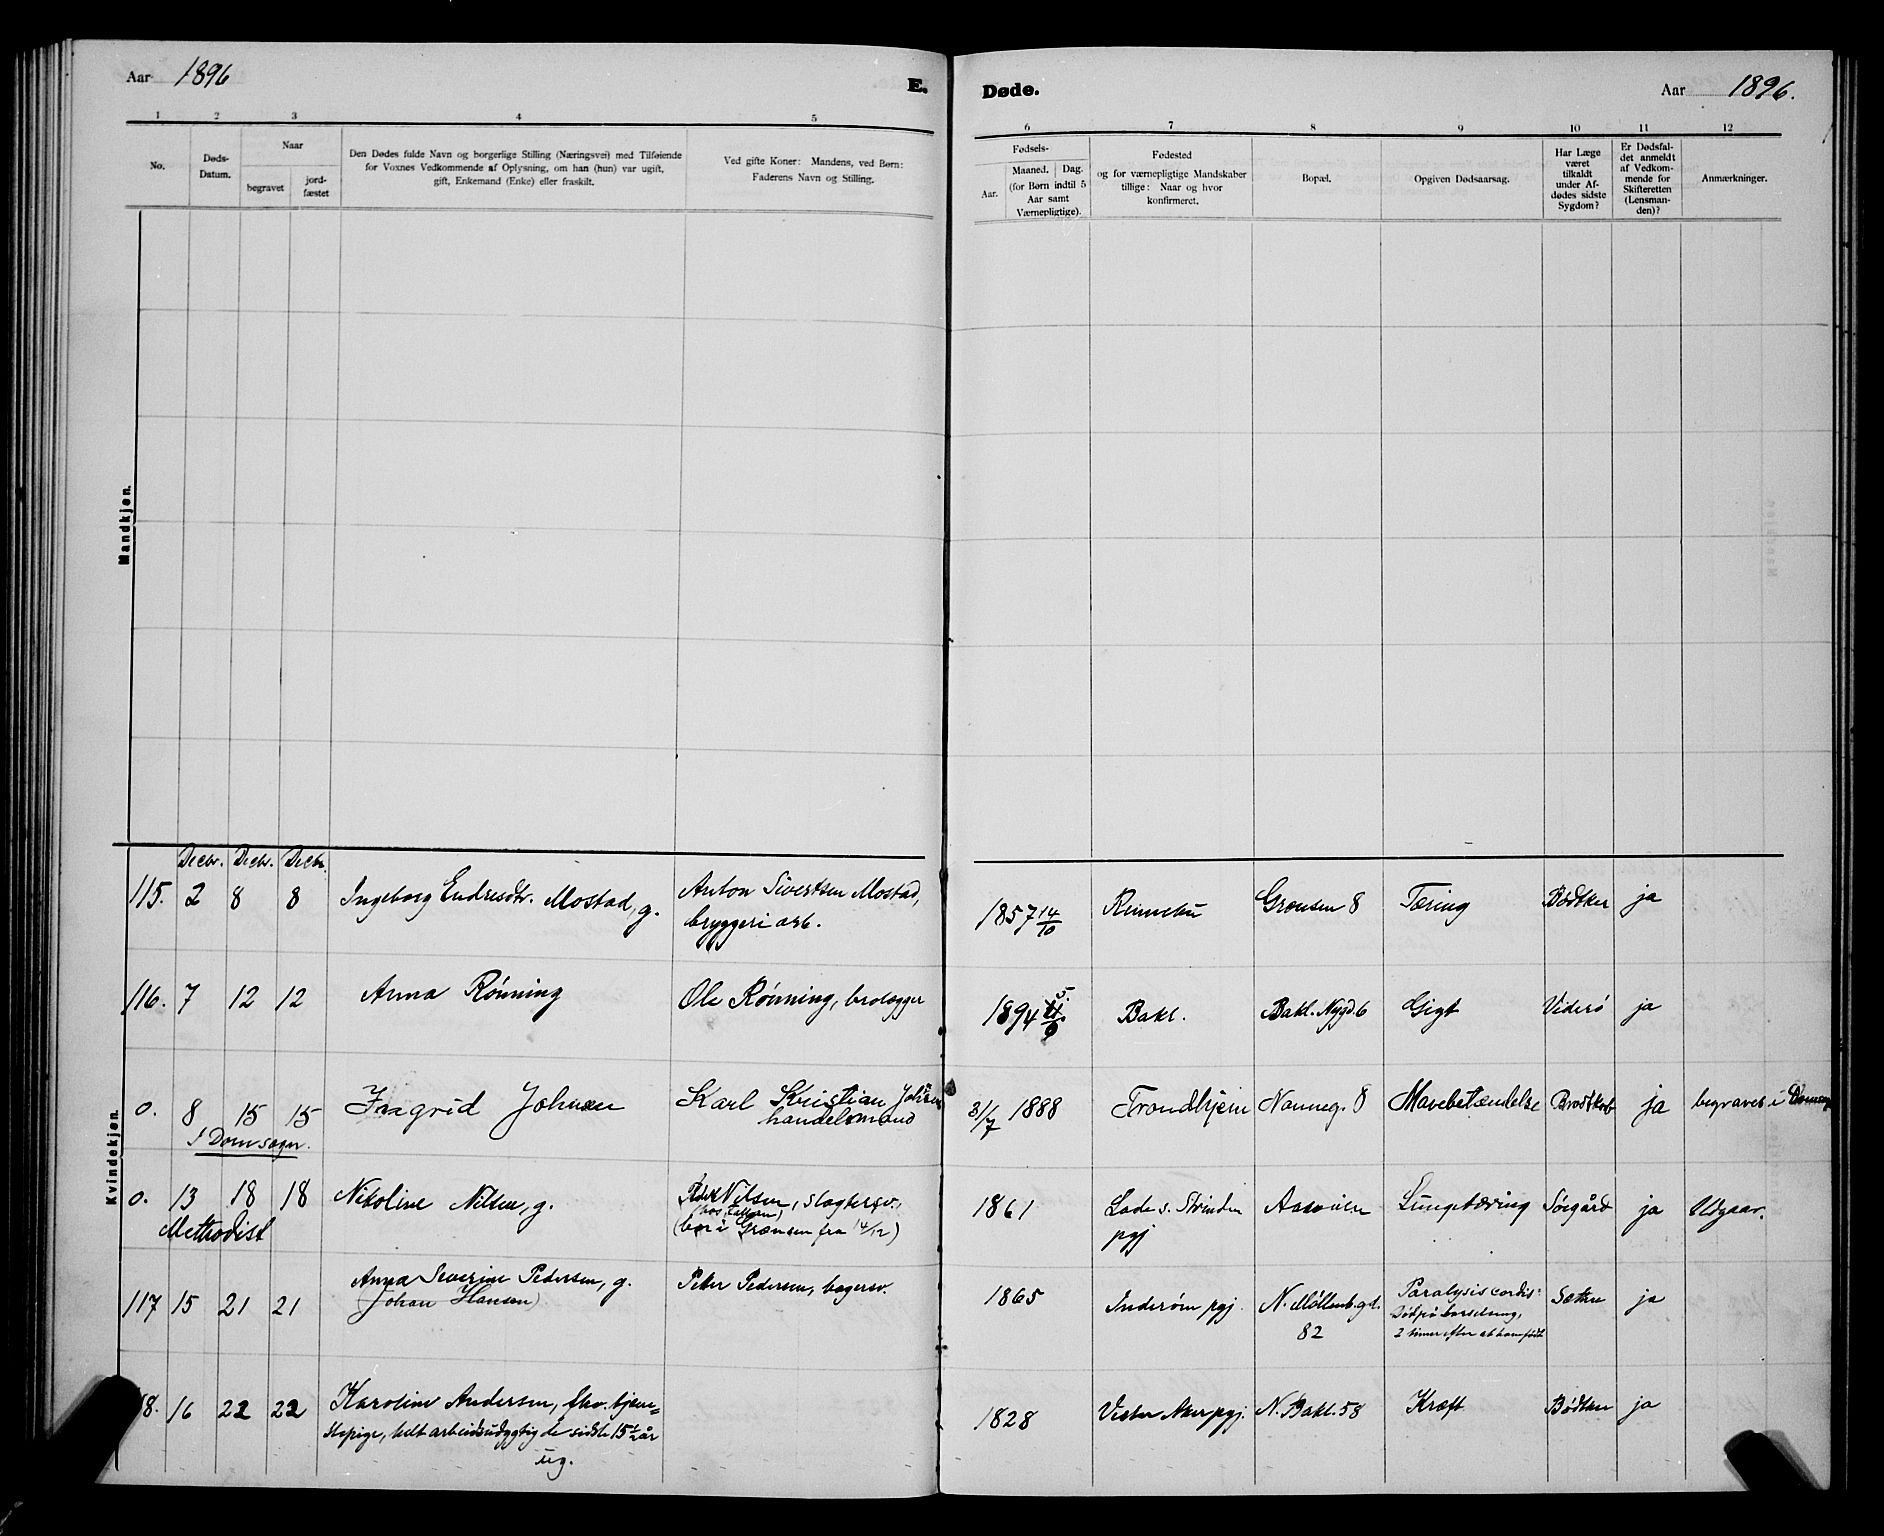 Aar 1896
E.
Døde.
Aar 1896.
1 2 3 4 5 6 7 8 9 10 11 12
No.
Døds-
Datum.
Naar
begravet
jord-
fæstet
Den Dødes fulde Navn og borgerlige Stilling (Næringsvei) med Tilføiende
for Voxnes Vedkommende af Oplysning, om han (hun) var ugift,
gift, Enkemand (Enke) eller fraskilt.
Ved gifte Koner: Mandens, ved Børn:
Faderens Navn og Stilling.
Fødsels-
Aar.
Maaned. Dag.
(for Børn indtil 5
Aar samt
Værnepligtige).
Fødested
og for værnepligtige Mandskaber
tillige: Naar og hvor
konfirmeret.
Bopæl.
Opgiven Dødsaarsag.
Har Læge
været
tilkaldt
under Af-
dødes sidste
Sygdom?
Er Dødsfal-
det anmeldt
af Vedkom-
mende for
Skifteretten
(Lensman-
den)?
Anmærkninger.
Mandkjøn.
Kvindekjøn.
Decbr. Decbr. Decbr.
115. 2 8 8 Ingeborg Endresdtr. Mostad, g.
Anton Sivertsen Mostad,
bryggeriarb.
1857 14/10 Rennebu Grænsen 8 Tæring Bødtker ja
116. 7 12 12 Anna Rönning
Ole Rönning, brolægger
1894 5/9 Bakl. Bakl. Nygd. 6 Gigt Viderö ja
0. 8 15 15 Ingrid Johnsen
i Domsogn.
Karl Kristian Johnsen
handelsmand
3/7 1888 Trondhjem Nanneg. 8 Mavebetændelse Brodtkorb ja begravet i
0. 13 18 18 Nikoline Nilsen, g.
Methodist
Nilsen, slagtersv.,
(bor i Grænsen fra 14/12)
1861 Lade s. Strinden
pgj
Aasveien Lungetæring Søegård ja Udgaar.
117 15 21 21 Anna Severine Pedersen, g.
Johan Hansen)
Peter Pedersen, bagersv.
1865 Inderøen pgj. N. Møllenb.gd.
82
Paralysis cordis:
Død på barselseng,
2 timer efter at ha født
Sæther ja
118. 16 22 22 Karoline Andersen, fhv. tjene=
stepige, helt arbeidsudygtig de sidste 15 1/2 år
ug.
1828 Vestre Aker pgj. N. Bakl. 58 Kræft Bødtker ja